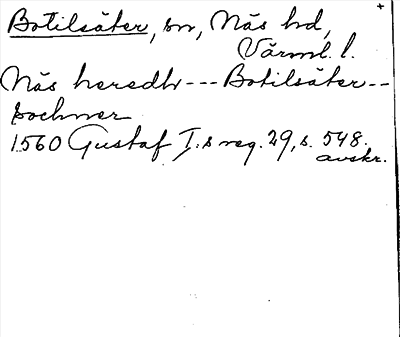 Botilsäter, sn, Näs hd,
Värml. l.
Näs heredh --- Botilsäter --
sochner
1560 Gustaf I.s reg. 29, s. 548.
avskr.